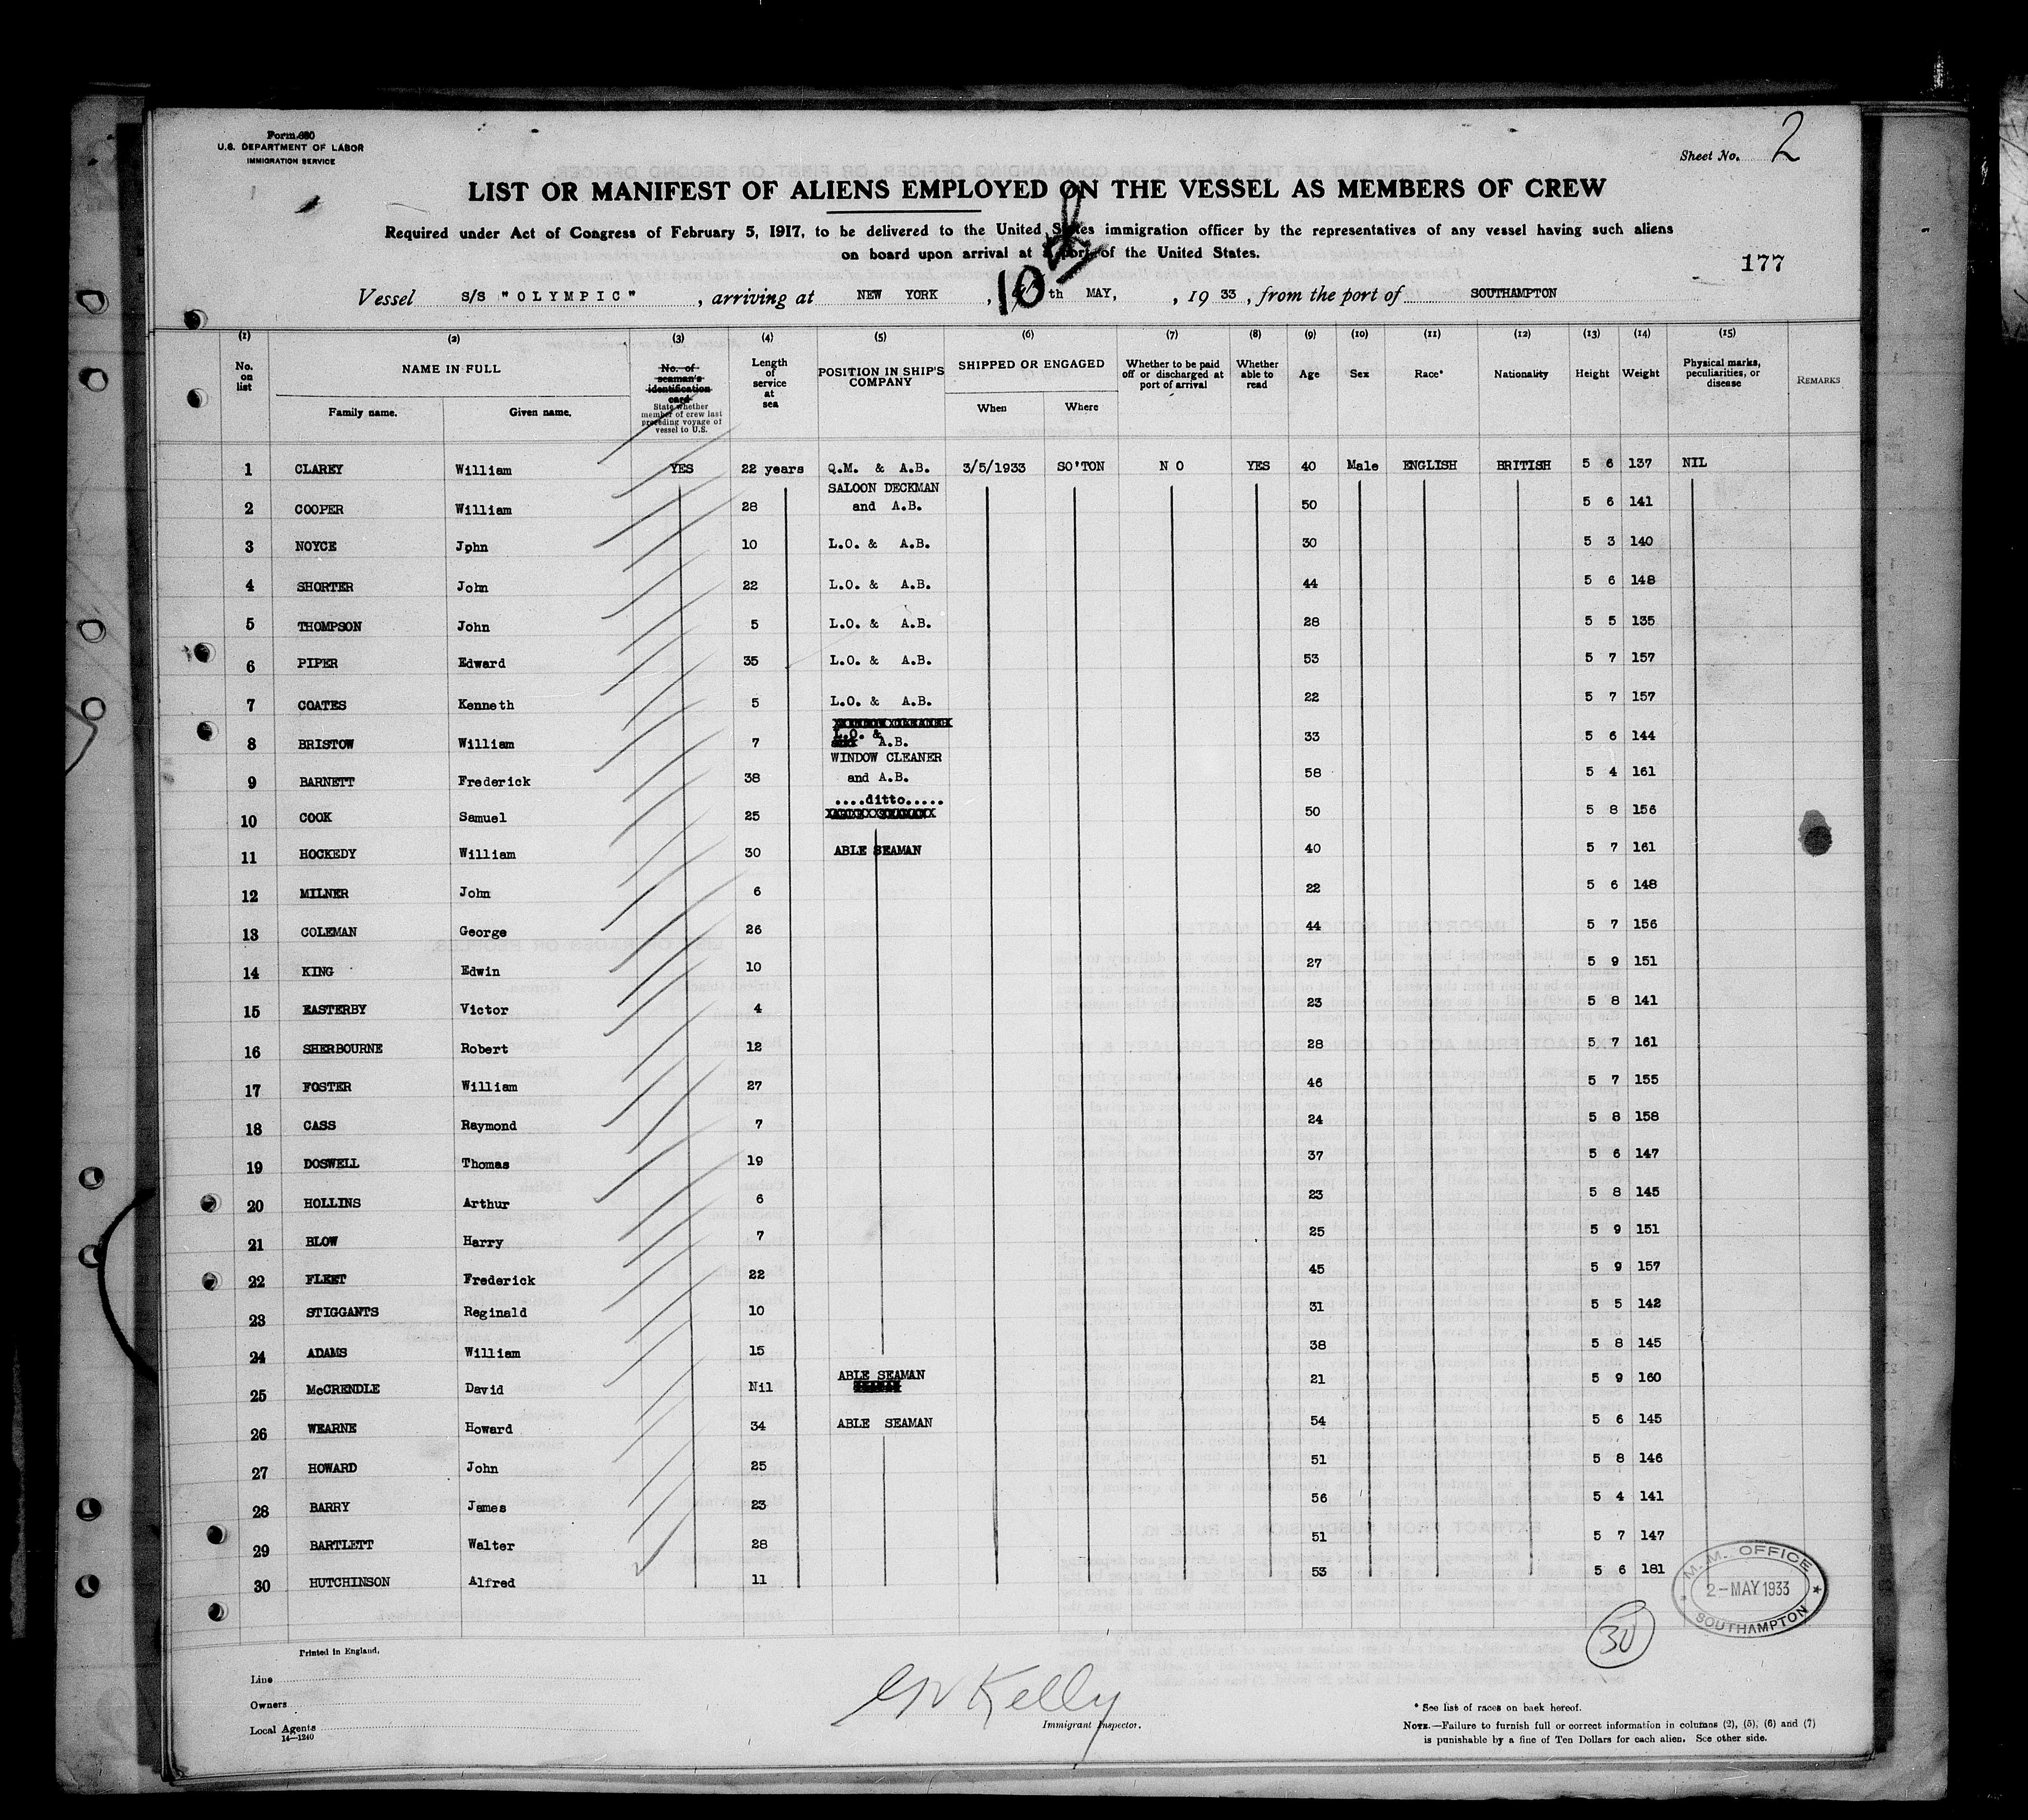 Form 680
U.S. DEPARTMENT OF LABOR
IMMIGRATION SERVICE
Sheet No. 2
LIST OR MANIFEST OF ALIENS EMPLOYED ON THE VESSEL AS MEMBERS OF CREW
Required under Act of Congress of February 5, 1917, to be delivered to the United States immigration officer by the representatives of any vessel having such aliens
on board upon arrival at a port of the United States.
177
Vessel S/S "OLYMPIC", arriving at NEW YORK, 10 th MAY, , 19 33, from the port of SOUTHAMPTON
(1) (2) (3) (4) (5) (6) (7) (8) (9) (10) (11) (12) (13) (14) (15)
No. on list
NAME IN FULL
Family name. Given name.
No. of seaman's identification card
State whether member of crew last preceding voyage of vessel to U.S.
Length of service at sea
POSITION IN SHIP'S COMPANY
SHIPPED OR ENGAGED
When Where
Whether to be paid off or discharged at port of arrival
Whether able to read
Age
Sex
Race*
Nationality
Height
Weight
Physical marks, peculiarities, or disease
REMARKS
1 CLAREY William YES 22 years Q.M. & A.B. 3/5/1933 SO'TON NO YES 40 Male ENGLISH BRITISH 5 6 137 NIL
2 COOPER William 28 SALOON DECKMAN and A.B. 50 5 6 141
3 NOYCE John 10 L.O. & A.B. 30 5 3 140
4 SHORTER John 22 L.O. & A.B. 44 5 6 148
5 THOMPSON John 5 L.O. & A.B. 28 5 5 135
6 PIPER Edward 35 L.O. & A.B. 53 5 7 157
7 COATES Kenneth 5 L.O. & A.B. 22 5 7 157
8 BRISTOW William 7 L.O. & A.B. 33 5 6 144
9 BARNETT Frederick 38 WINDOW CLEANER and A.B. 58 5 4 161
10 COOK Samuel 25 ....ditto..... 50 5 8 156
11 HOCKEDY William 30 ABLE SEAMAN 40 5 7 161
12 MILNER John 6 22 5 6 148
13 COLEMAN George 26 44 5 7 156
14 KING Edwin 10 27 5 9 151
15 EASTERBY Victor 4 23 5 8 141
16 SHERBOURNE Robert 12 28 5 7 161
17 FOSTER William 27 46 5 7 155
18 CASS Raymond 7 24 5 8 158
19 DOSWELL Thomas 19 37 5 6 147
20 HOLLINS Arthur 6 23 5 8 145
21 BLOW Harry 7 25 5 9 151
22 FLEET Frederick 22 45 5 9 157
23 STIGGANTS Reginald 10 31 5 5 142
24 ADAMS William 15 38 5 8 145
25 McCRENDLE David Nil ABLE SEAMAN 21 5 9 160
26 WEARNE Howard 34 ABLE SEAMAN 54 5 6 145
27 HOWARD John 25 51 5 8 146
28 BARRY James 23 56 5 4 141
29 BARTLETT Walter 28 51 5 7 147
30 HUTCHINSON Alfred 11 53 5 6 181
M.M. OFFICE
2-MAY 1933
SOUTHAMPTON
30
Printed in England.
Line
Owners
Local Agents
14—1240
Kelly
Immigrant Inspector.
* See list of races on back hereof.
NOTE.—Failure to furnish full or correct information in columns (2), (5), (6) and (7)
is punishable by a fine of Ten Dollars for each alien. See other side.